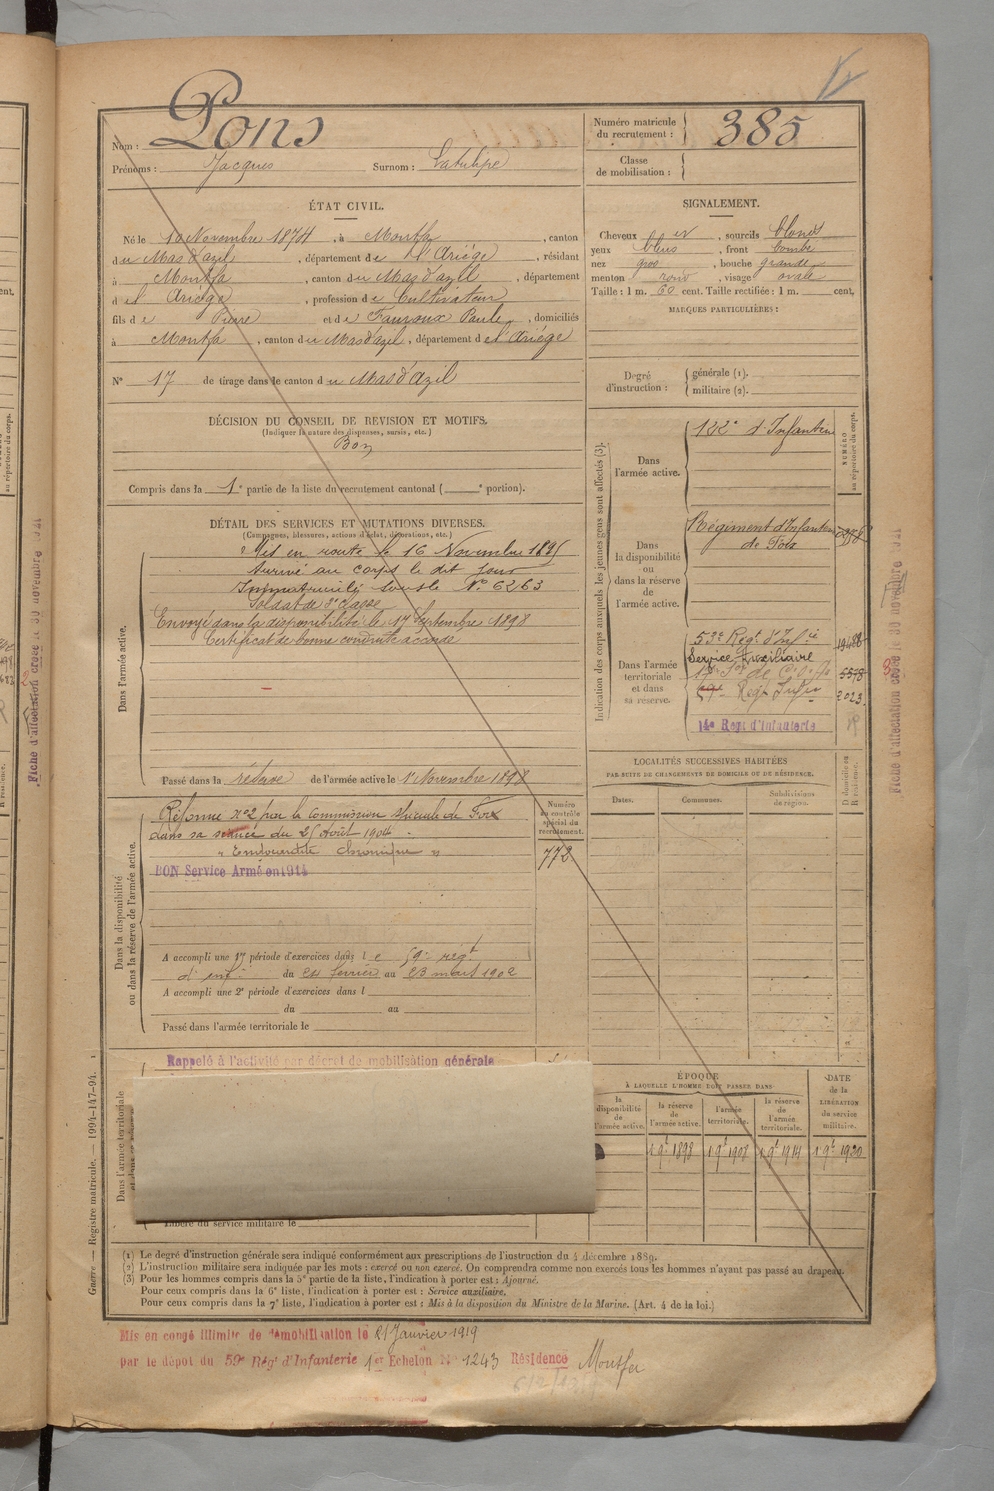 Pons
Nom :
Prénoms : Jacques Surnom : Latulipe
Numéro matricule du recrutement : 385
Classe de mobilisation :
ÉTAT CIVIL.
Né le 10 Novembre 1874, à Montfa, canton
du Mas d'azil, département de l'Ariége, résidant
à Montfa, canton du Mas d'azil, département
d el Ariége, profession de Cultivateur
fils de Pierre et de Fauroux Paule, domiciliés
à Montfa, canton du Mas d'azil, département de l'Ariége
N° 17 de tirage dans le canton du Mas d'Azil
DÉCISION DU CONSEIL DE REVISION ET MOTIFS.
(Indiquer la nature des dispenses, sursis, etc.)
Bon
Compris dans la 1e partie de la liste du recrutement cantonal ( e portion).
DÉTAIL DES SERVICES ET MUTATIONS DIVERSES.
(Campagnes, blessures, actions d'éclat, décorations, etc.)
Dans l'armée active.
Mis en route le 16 Novembre 1895
Arrivé au corps le dit jour
Immatriculé sous le N° 6263
Soldat de 2e classe
Envoyé dans la disponibilité le 17 Septembre 1898
Certificat de bonne conduite accordé
Passé dans la réserve de l'armée active le 1 Novembre 1898
Dans la disponibilité
ou dans la réserve de l'armée active.
Réformé N°2 par la commission spéciale de Foix
dans sa séance du 25 Août 1904
" chronique "
BON Service Armé en 1914
Numéro au contrôle spécial du recrutement.
772
A accompli une 1re période d'exercices dans le 59e régt
d'inf. du 24 février au 23 mars 1902
A accompli une 2e période d'exercices dans l
du au
Passé dans l'armée territoriale le
Dans l'armée territoriale
Rappelé à l'activité par décret de mobilisation générale
Libéré du service militaire le
SIGNALEMENT.
Cheveux et, sourcils blonds
yeux bleus, front bombé
nez gros, bouche grande
menton rond, visage ovale
Taille : 1 m. 60 cent. Taille rectifiée : 1 m. cent.
MARQUES PARTICULIÈRES :
Degré d'instruction :
générale (1).
militaire (2).
Indication des corps auxquels les jeunes gens sont affectés (3).
NUMÉRO
au répertoire du corps.
Dans l'armée active.
122e d'Infanterie
Dans la disponibilité ou dans la réserve de l'armée active.
Régiment d'Infanterie
de Foix
Dans l'armée territoriale et dans sa réserve.
53e Régt d'Infie
Service Auxiliaire
5578
59e Regt Infie 2023
14e Regt d'Infanterie
LOCALITÉS SUCCESSIVES HABITÉES
PAR SUITE DE CHANGEMENTS DE DOMICILE OU DE RÉSIDENCE.
Dates.
Communes.
Subdivisions de région.
D domicile ou R résidence.
ÉPOQUE
À LAQUELLE L'HOMME DOIT PASSER DANS
la disponibilité de l'armée active.
la réserve de l'armée active.
l'armée territoriale.
la réserve de l'armée territoriale.
DATE de la LIBÉRATION du service militaire.
1 9e 1898
1 9e 1908
1 9e 1914
1 9e 1920
Guerre — Registre matricule. — 1994-147-94.
(1) Le degré d'instruction générale sera indiqué conformément aux prescriptions de l'instruction du 4 décembre 1889.
(2) L'instruction militaire sera indiquée par les mots : exercé ou non exercé. On comprendra comme non exercés tous les hommes n'ayant pas passé au drapeau.
(3) Pour les hommes compris dans la 5e partie de la liste, l'indication à porter est : Ajourné.
Pour ceux compris dans la 6e liste, l'indication à porter est : Service auxiliaire.
Pour ceux compris dans la 7e liste, l'indication à porter est : Mis à la disposition du Ministre de la Marine. (Art. 4 de la loi.)
Mis en congé illimité de démobilisation le 21 Janvier 1919
par le dépôt du 59e Régt d'Infanterie 1er Echelon N° 1243 Résidence Montfa
Fiche d'affectation créée le 30 novembre
Fiche d'affectation créée le 30 novembre